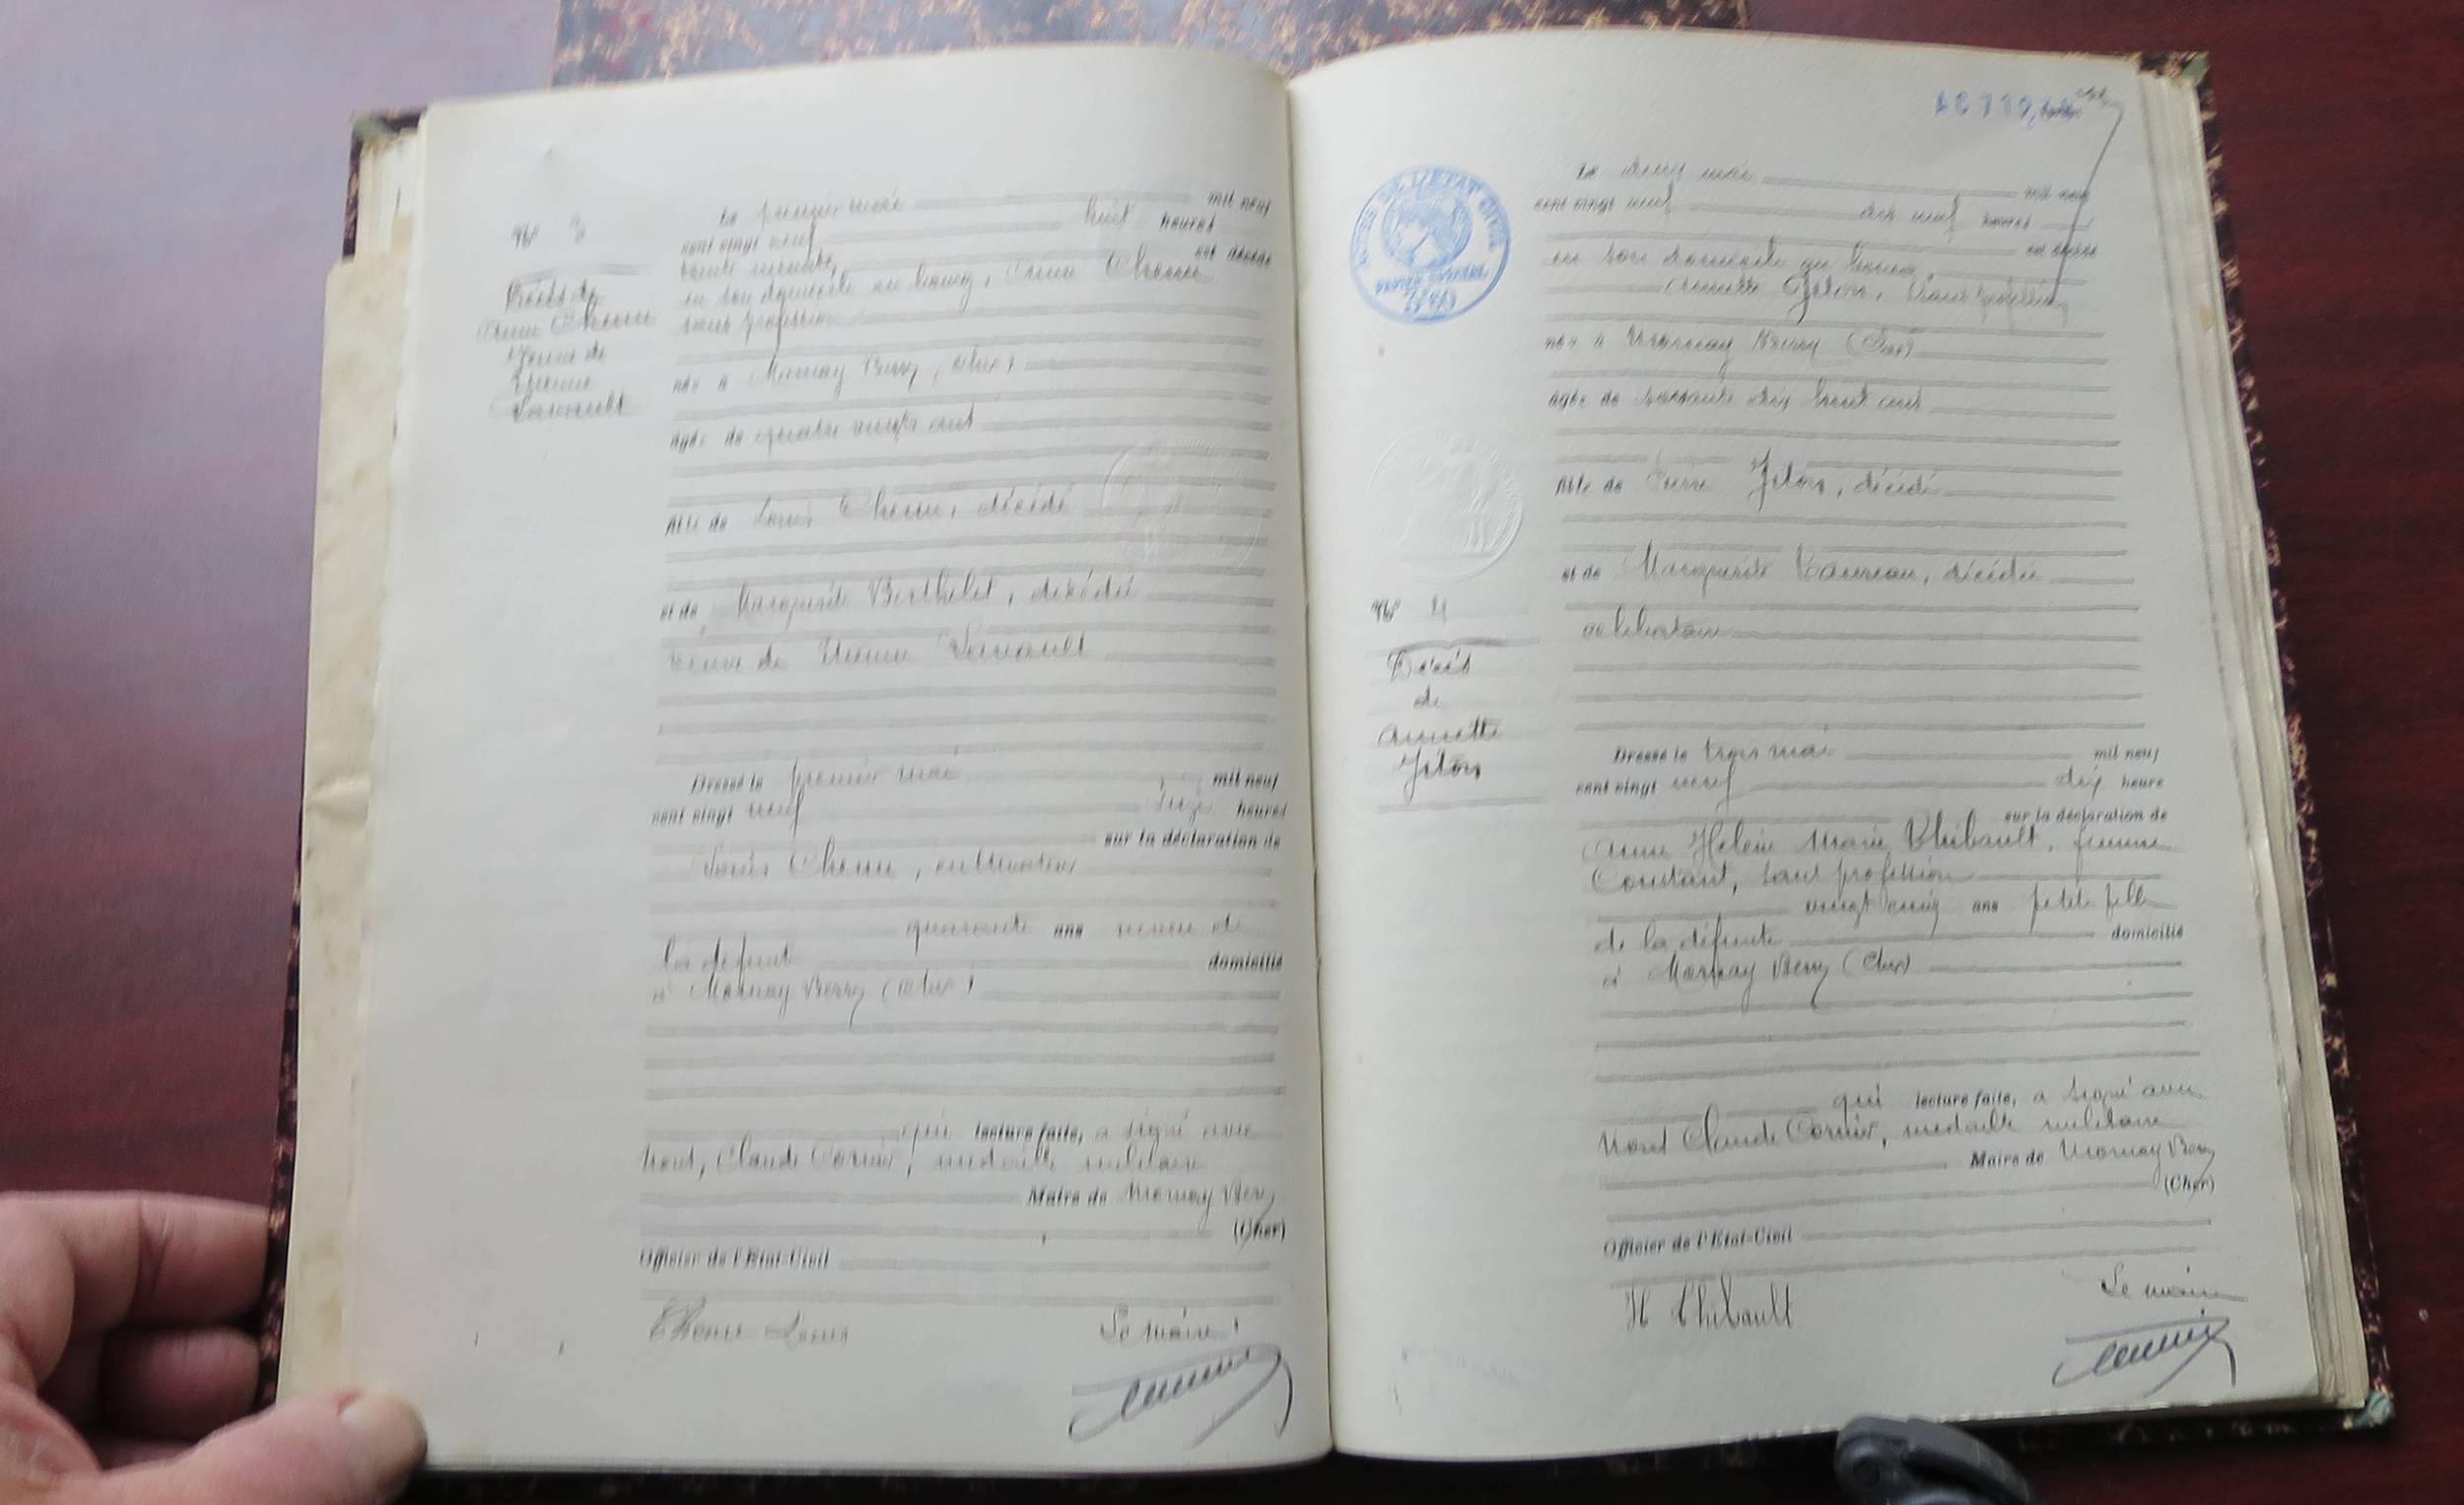 N° 3
Décès de
Anne Chenu
Veuve de
Etienne
Lavault
Le premier mai mil neuf
cent vingt neuf huit heures
trente minutes, est décédé
en son domicile au bourg, Anne Chenu
sans profession
née à Mornay Berry (Cher)
âgée de quatre vingts ans
fille de Louis Chenu, décédé
et de Marguerite Berthelet, décédée
veuve de Etienne Lavault
Dressé le premier mai mil neuf
cent vingt neuf heures
sur la déclaration de
Louis Chenu, cultivateur
quarante ans neveu de
la defunt domicilié
à Mornay Berry (Cher)
qui lecture faite, a signé avec
Nous, Claude Cornier, médaille militaire
Maire de Mornay Berry
(Cher)
Officier de l'Etat-Civil
Chenu Louis Le maire
Le deux mai mil neuf
cent vingt neuf dix neuf heures
est décédé
en son domicile au bourg,
Annette Jiton, sans profession
née à Mornay Berry (Cher)
âgée de soixante dix huit ans
fille de Pierre Jiton, décédé
et de Marguerite Taureau, décédée
célibataire
N° 4
Décès
de
Annette
Jiton
Dressé le trois mai mil neuf
cent vingt neuf dix heure
sur la déclaration de
Anne Helein Marie Thibault, femme
Constant, sans profession
vingt cinq ans petite fille
de la défunte domicilié
à Mornay Berry (Cher)
qui lecture faite, a signé avec
Nous Claude Cornier, médaille militaire
Maire de Mornay Berry
(Cher)
Officier de l'Etat-Civil
H Thibault Le maire